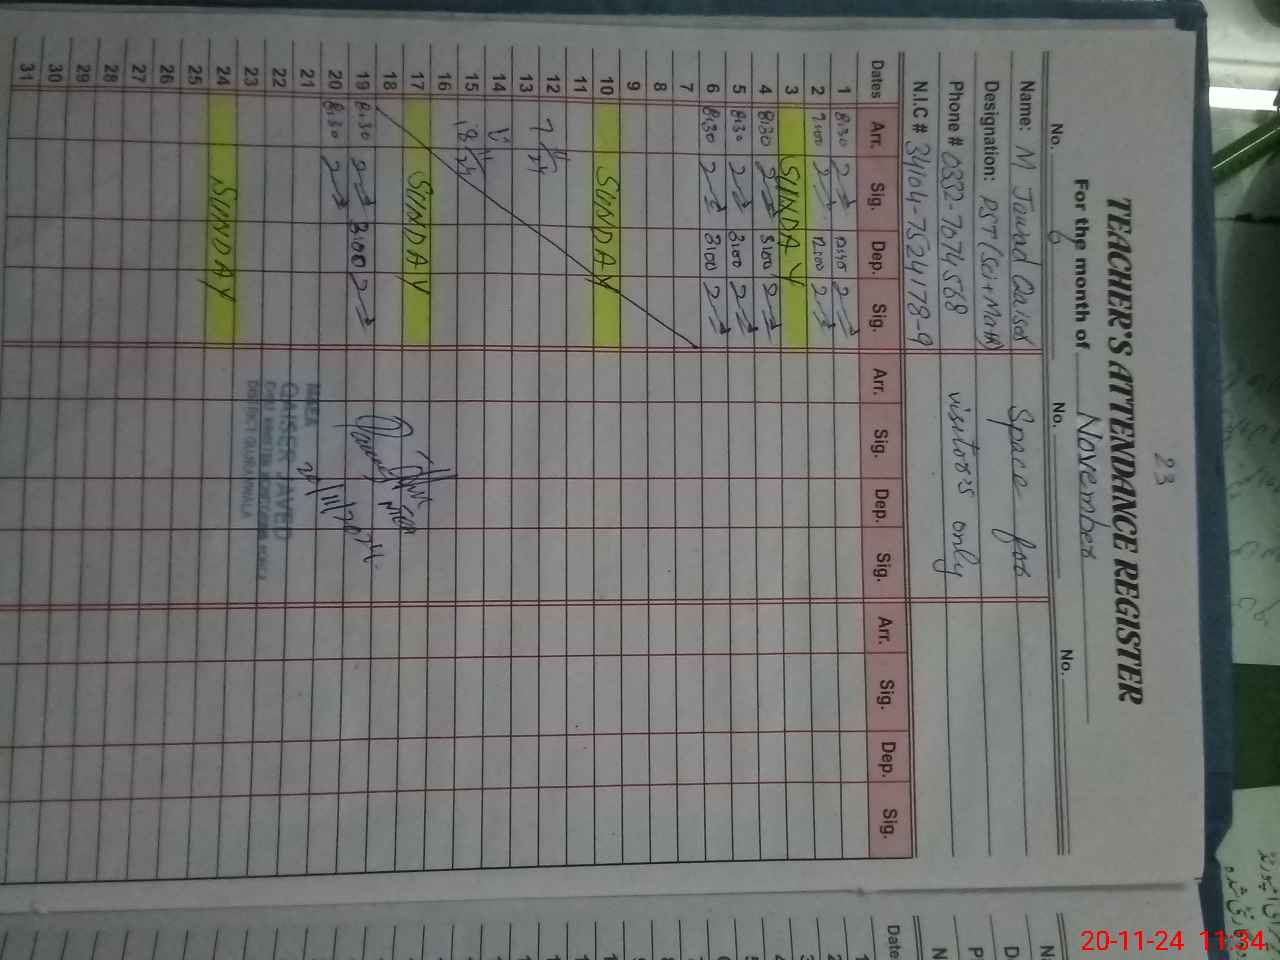 23
TEACHER'S ATTENDANCE REGISTER
For the month of November
No. 6 No. No.
Name: M Javed Qaiser Space for
Designation: PST (Sci+Math)
Phone # 0332-7074568 visitors only
N.I.C # 34104-7524178-9
Dates Arr. Sig. Dep. Sig. Arr. Sig. Dep. Sig. Arr. Sig. Dep. Sig.
1 8:30 12:45
2 12:00
3 SUNDAY
4 8:30 3:00
5 8:30 3:00
6 8:30 3:00
7
8
9
10 SUNDAY
11
12 7/11/24
13
14
15 18/11/24
16
17 SUNDAY
18
19 8:30 3:00
20 8:30
21
22
23
24 SUNDAY
25
26
27
28
29
30
31
MEA
QAISER JAVED
DISTRICT GUJRANWALA
Date
20-11-24 11:34